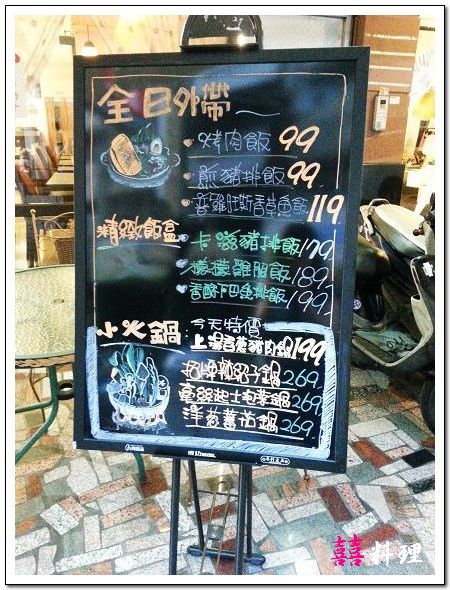 全日外帶
烤肉飯 99
煎豬排飯 99
普羅旺斯香草魚飯 119
精緻飯盒
卡滋豬排飯 179
檬檬雞腿飯 189
香酥下巴魚排飯 199
小火鍋:今天特價
豬肉鍋 199
招牌辣
鍋 269
起士泡菜鍋 269
洋蔥蕃茄鍋 269
囍料理